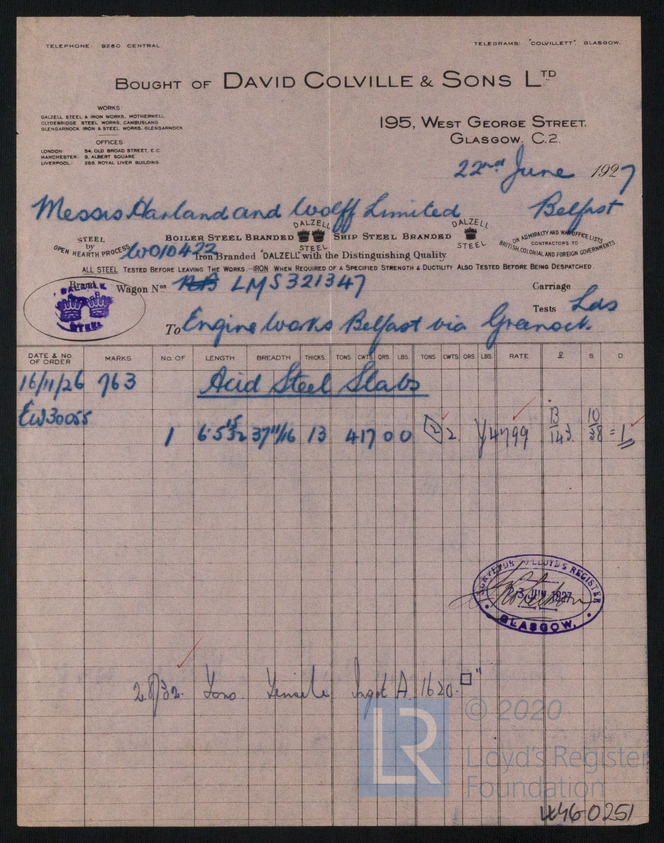 TELEPHONE: 9280 CENTRAL.
TELEGRAMS: "COLVILLETT" GLASGOW.
BOUGHT OF DAVID COLVILLE & SONS LTD
WORKS:
DALZELL STEEL & IRON WORKS, MOTHERWELL.
CLYDEBRIDGE STEEL WORKS, CAMBUSLANG
GLENGARNOCK IRON & STEEL WORKS, GLENGARNOCK
OFFICES
LONDON: 54, OLD BROAD STREET, E.C.
MANCHESTER: 9, ALBERT SQUARE
LIVERPOOL: 268, ROYAL LIVER BUILDING.
195, WEST GEORGE STREET.
GLASGOW. C.2.
22nd June 1927
Messrs Harland and Wolff Limited Belfast
STEEL by OPEN HEARTH PROCESS
BOILER STEEL BRANDED DALZELL STEEL SHIP STEEL BRANDED DALZELL STEEL
ON ADMIRALTY AND WAR OFFICE LISTS
CONTRACTORS TO
BRITISH, COLONIAL AND FOREIGN GOVERNMENTS
WO10422
Iron Branded "DALZELL" with the Distinguishing Quality.
ALL STEEL TESTED BEFORE LEAVING THE WORKS—IRON WHEN REQUIRED OF A SPECIFIED STRENGTH & DUCTILITY ALSO TESTED BEFORE BEING DESPATCHED.
Brand DALZELL STEEL
Wagon Nos LMS321347
Carriage
Tests Lds
To Engine Works Belfast via Greenock.
DATE & NO. OF ORDER MARKS NO. OF LENGTH BREADTH THICKS. TONS CWTS QRS. LBS. TONS CWTS. QRS. LBS. RATE £ S D
16/11/26 763 Acid Steel Slabs
EW30055
1 37 11/16 13 4 17 0 0 2. 4799 13 143. 10 28 = 1
SURVEYOR LLOYD'S REGISTER
JUN 1927
GLASGOW.
Tons Tensile Ingot A 1620 □"
LR
© 2020
Lloyd's Register
Foundation
W460251